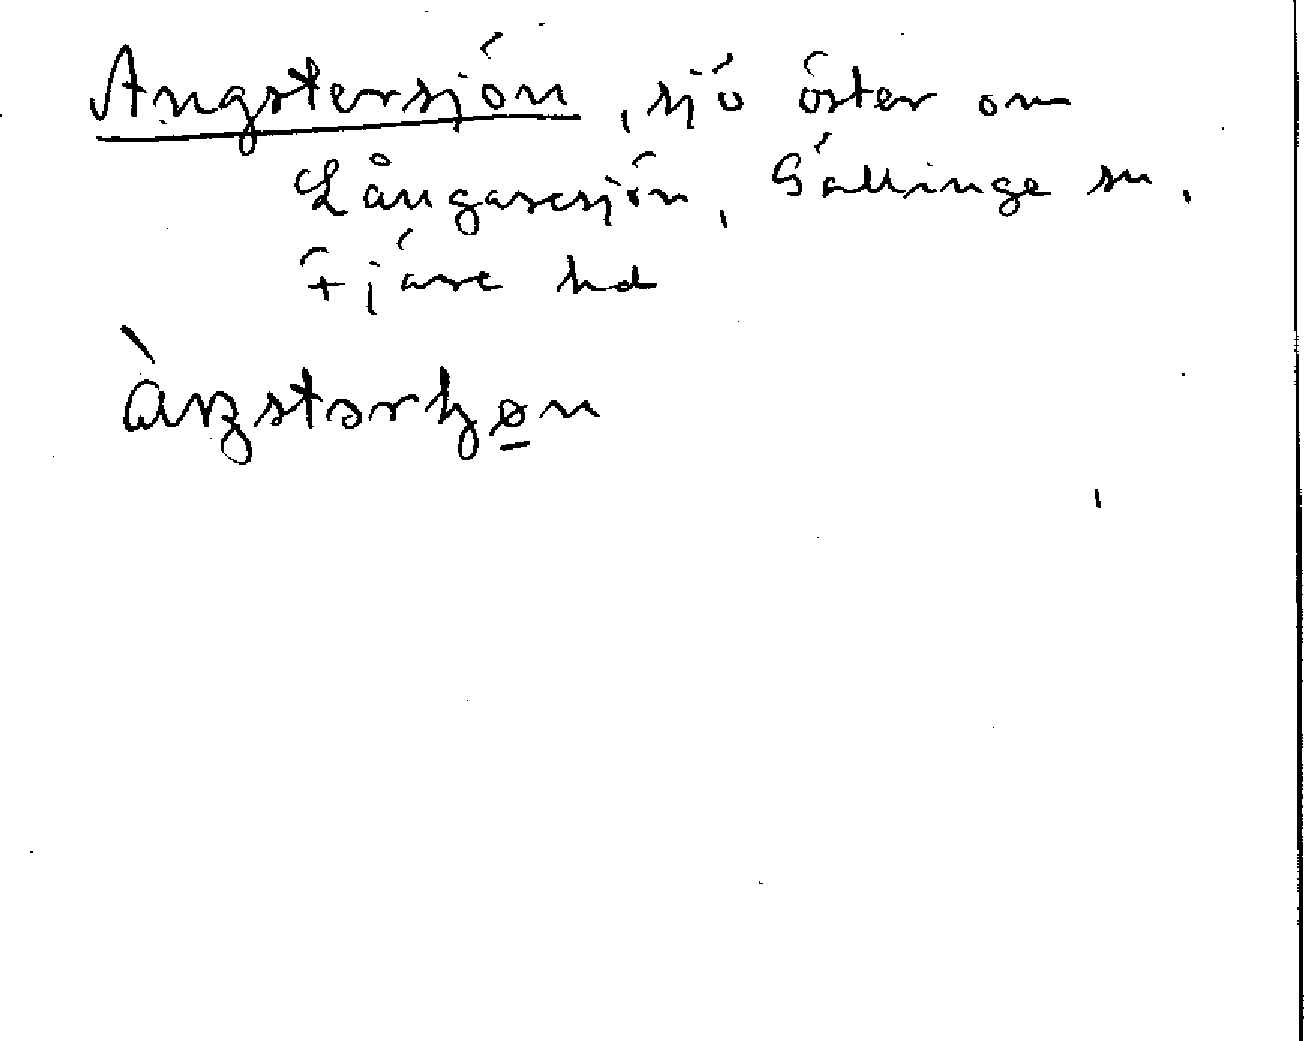 Angstersjön, sjö öster om
Långaresjön, Gällinge sn,
Fjäre hd